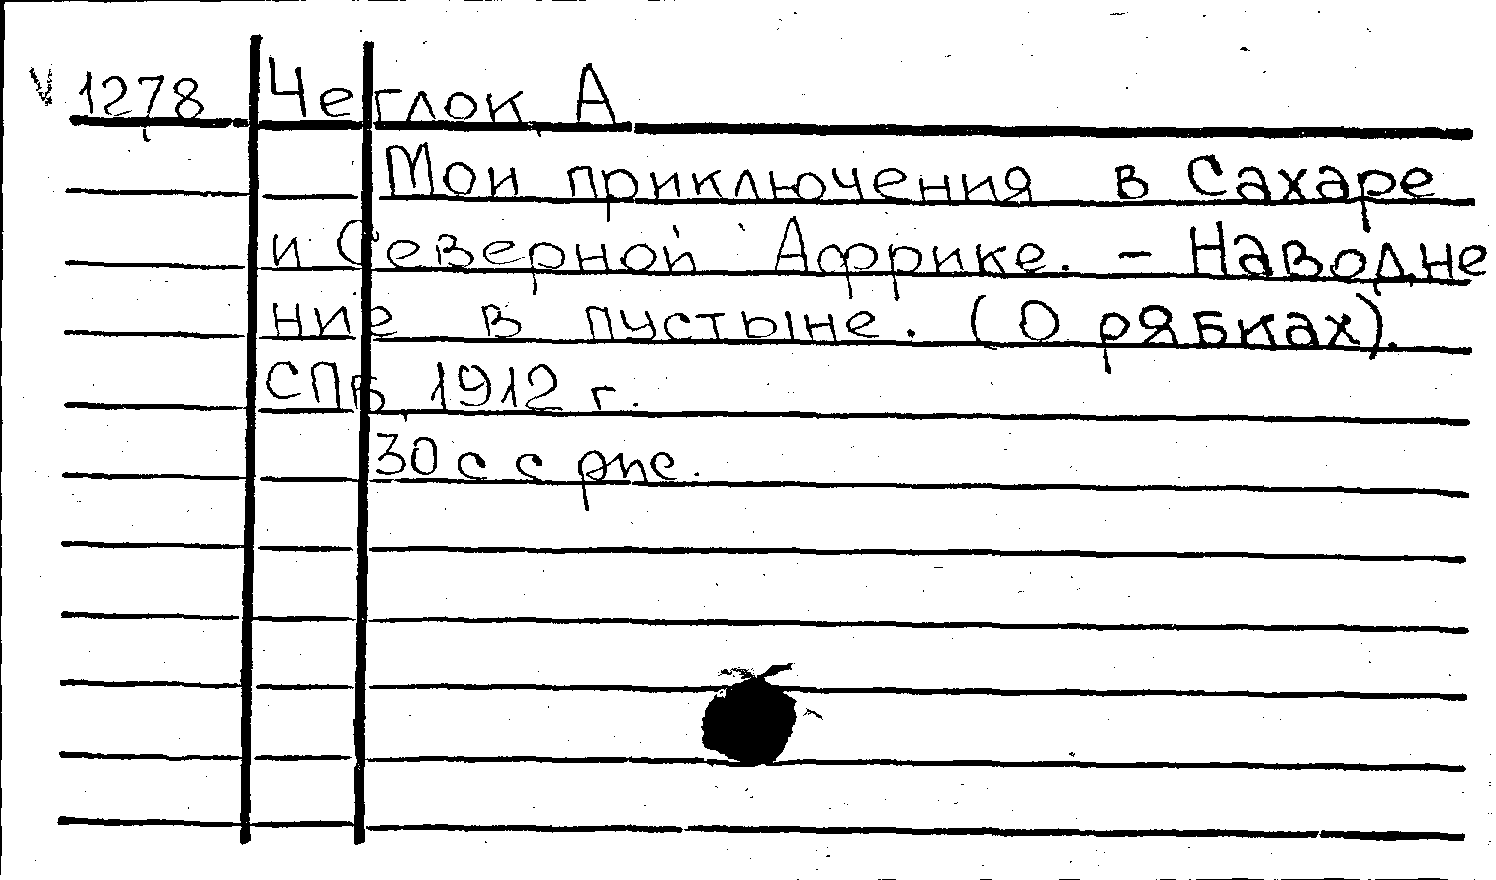 V 1278 Чеглок, А
Мои приключения в Сахаре
и Северной Африке. - Наводне
ние в пустыне. (О рябках).
СПБ, 1912 г.
30 с с рис.